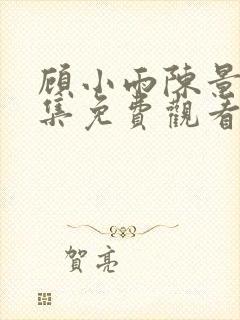 顾小雨陈景
集免費觀看
賀亮